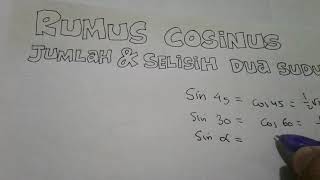 RUMUS COSINUS
JUMLAH & SELISIH DUA SUDU
Sin 45 = cos 45 = 1/2√
Sin 30 = cos 60 = 1
Sin α =